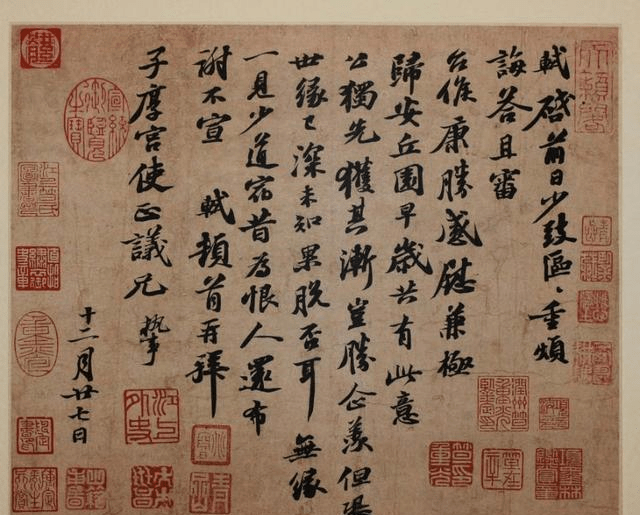 軾啓前日少致區、重煩
誨荅且審
台候康勝感慰兼極
歸安丘園早歲共有此意
公獨先獲其漸豈勝企羨但恐
世緣已深未知果脫否耳無緣
一見少道宿昔為恨人還布
謝不宣 軾頓首再拜
子厚宫使正議兄執事
十二月廿七日